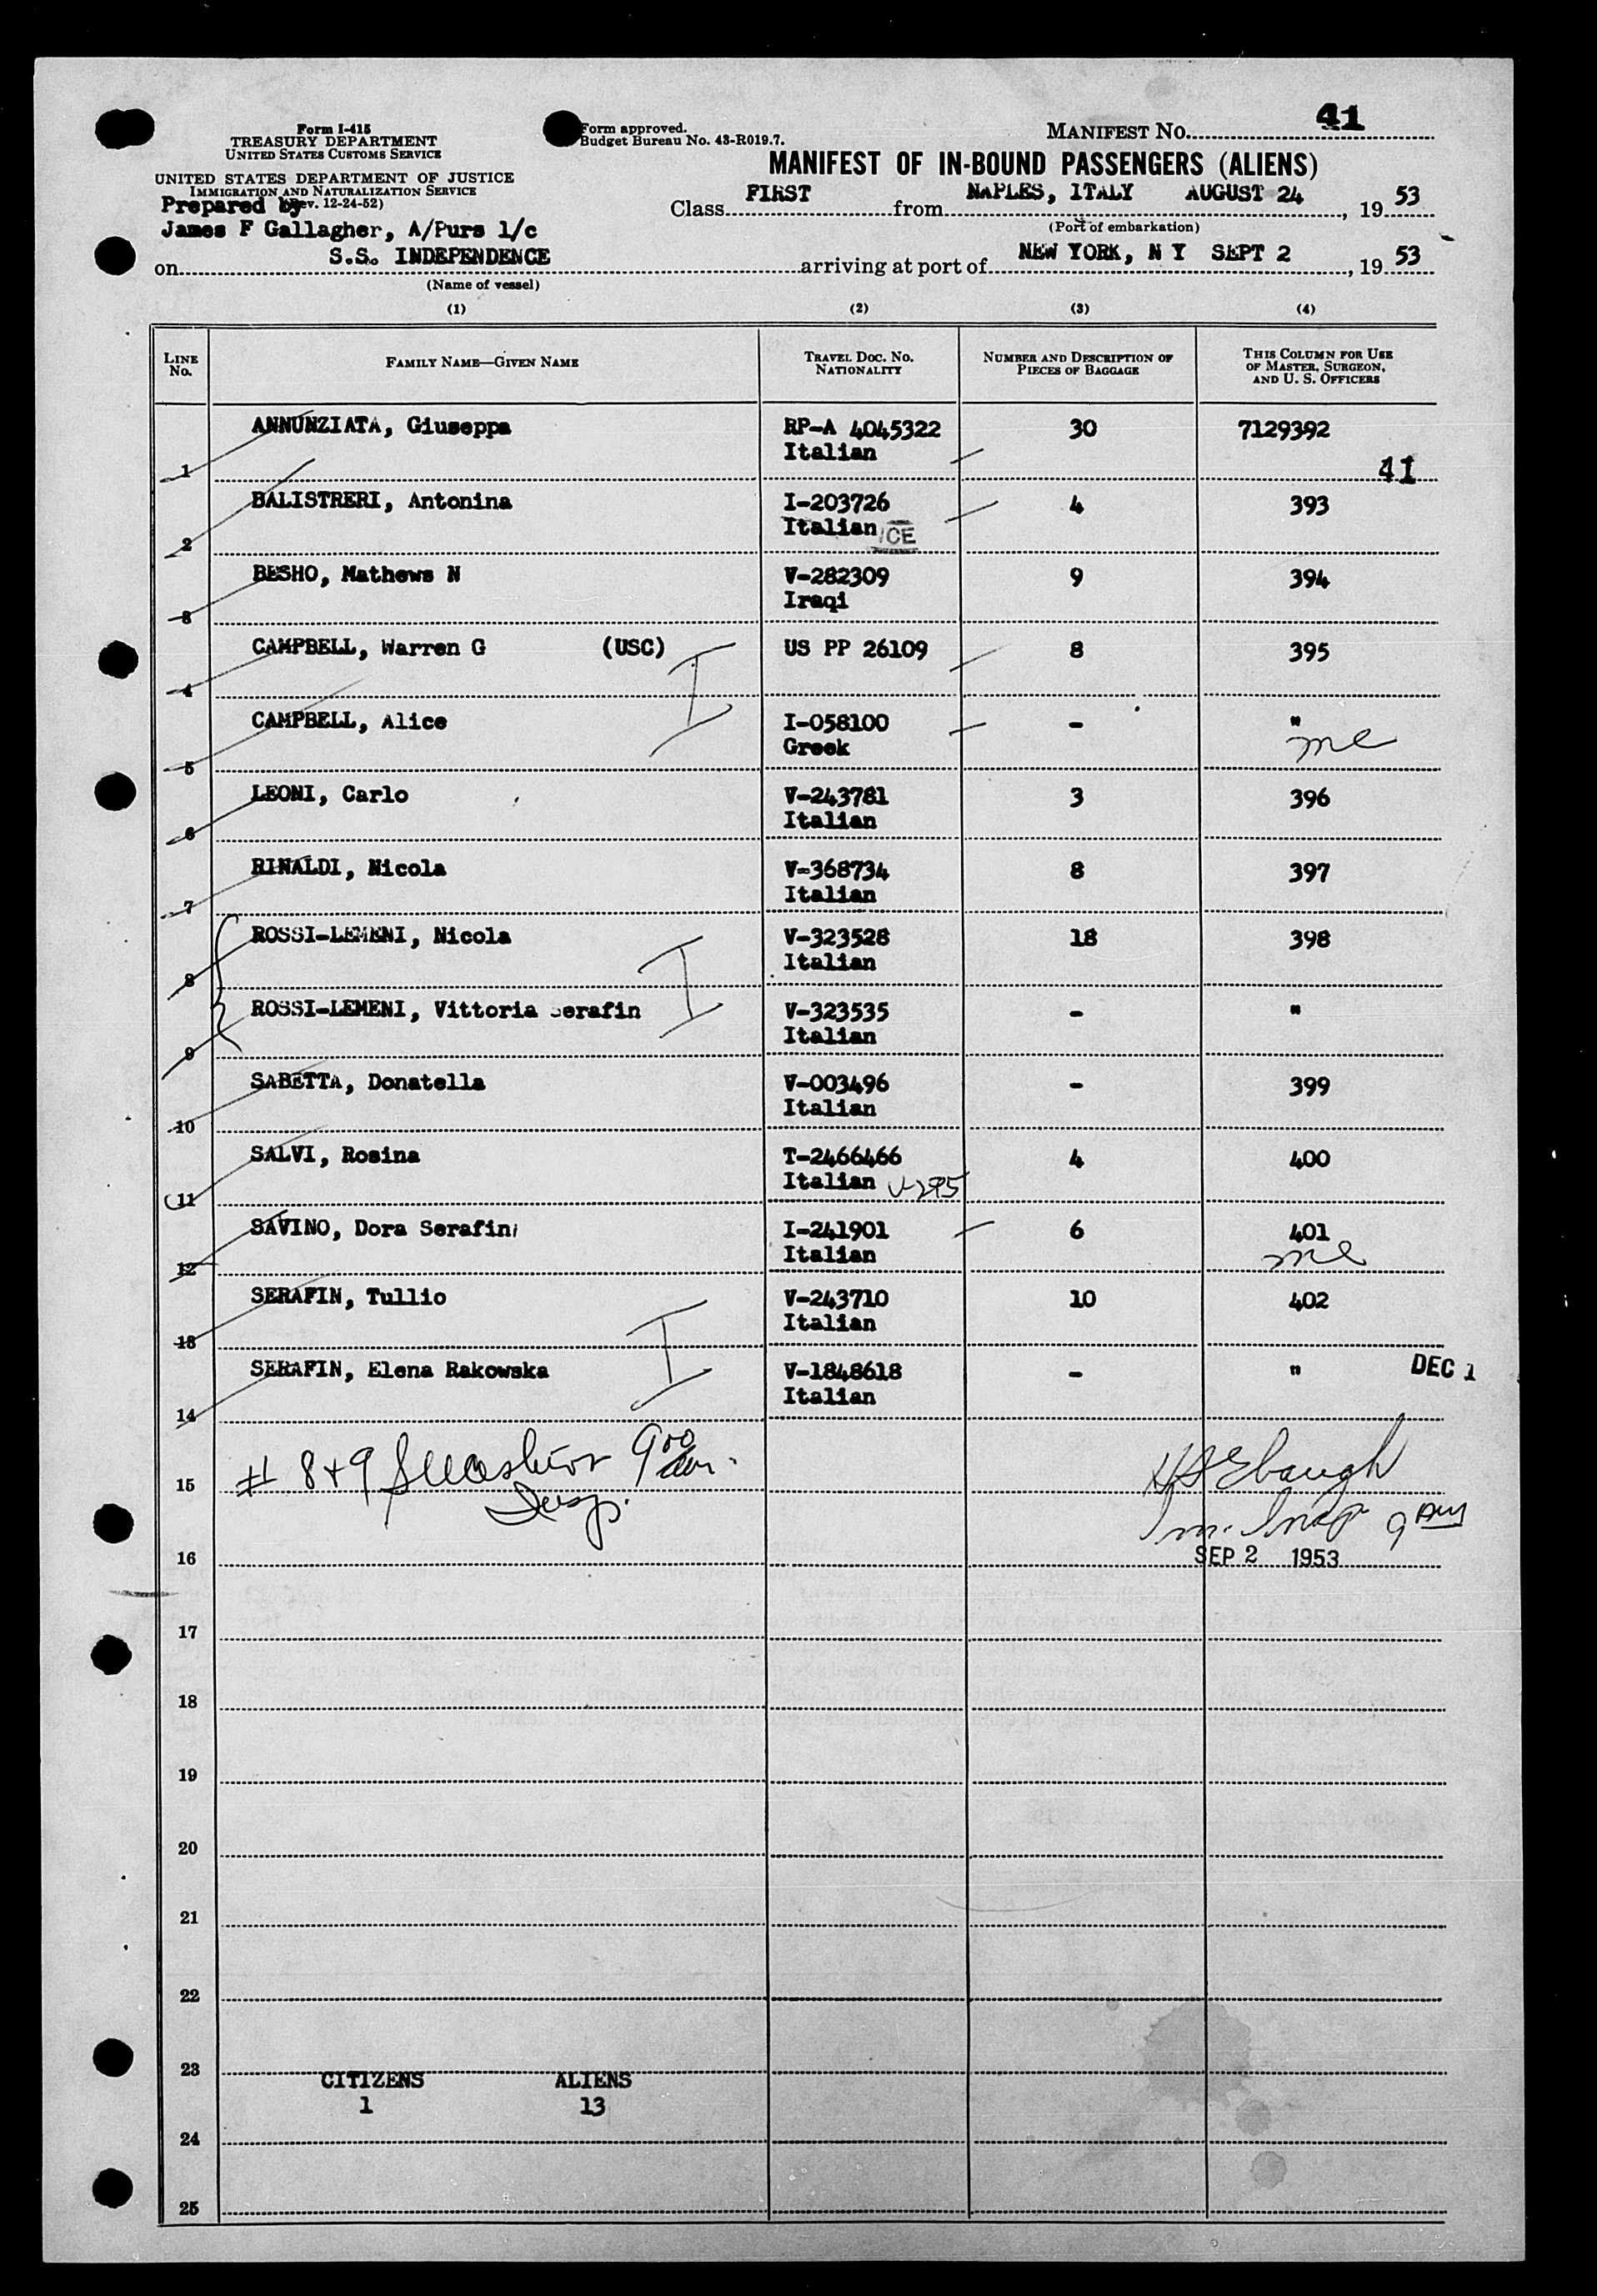 41
Form I-415
TREASURY DEPARTMENT
UNITED STATES CUSTOMS SERVICE
UNITED STATES DEPARTMENT OF JUSTICE
IMMIGRATION AND NATURALIZATION SERVICE
(Rev. 12-24-52)
Prepared by
James F Gallagher, A/Purs 1/c
Form approved.
Budget Bureau No. 43-R019.7.
MANIFEST NO.
MANIFEST OF IN-BOUND PASSENGERS (ALIENS)
Class FIRST from NAPLES, ITALY AUGUST 24, 19 53
(Port of embarkation)
on S.S. INDEPENDENCE arriving at port of NEW YORK, N Y SEPT 2, 19 53
(Name of vessel)
(1) (2) (3) (4)
LINE NO. FAMILY NAME—GIVEN NAME TRAVEL DOC. NO. NATIONALITY NUMBER AND DESCRIPTION OF PIECES OF BAGGAGE THIS COLUMN FOR USE OF MASTER, SURGEON, AND U. S. OFFICERS
ANNUNZIATA, Giuseppa RP-A 4045322 30 7129392
1 Italian 41
BALISTRERI, Antonina I-203726 4 393
2 Italian CE
BESHO, Mathews N V-282309 9 394
3 Iraqi
CAMPBELL, Warren G (USC) US PP 26109 8 395
4 I
CAMPBELL, Alice I-058100 - "
5 Greek me
LEONI, Carlo V-243781 3 396
6 Italian
RINALDI, Nicola V-368734 8 397
7 Italian
ROSSI-LEMENI, Nicola V-323528 18 398
8 Italian
I
ROSSI-LEMENI, Vittoria Serafin V-323535 - "
9 Italian
SABETTA, Donatella V-003496 - 399
10 Italian
SALVI, Rosina T-2466466 4 400
11 Italian V-295
SAVINO, Dora Serafini I-241901 6 401
12 Italian me
SERAFIN, Tullio V-243710 10 402
13 Italian
I
SERAFIN, Elena Rakowska V-1848618 - " DEC 1
14 Italian
# 8+9 900 am.
15 Insp. H S Ebaugh
Im. Insp 9 AM
16 SEP 2 1953
17
18
19
20
21
22
23
CITIZENS ALIENS
1 13
24
25